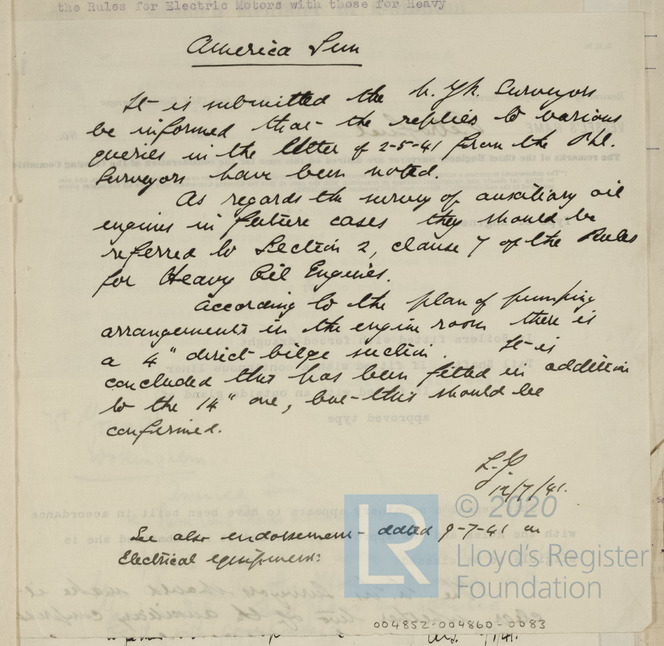 the Rules for Electric Motors with those for Heavy
America Sun
It is submitted the N. Yk. Surveyors
be informed that the replies to various
queries in the letter of 2-5-41 from the Phl.
Surveyors have been noted.
As regards the survey of auxiliary oil
engines in future cases they should be
referred to Section 2, clause 7 of the Rules
for Heavy Oil Engines.
According to the plan of pumping
arrangements in the engine room there is
a 4" direct bilge suction. It is
concluded this has been fitted in addition
to the 14" one, but this should be
confirmed.
12/7/41.
See also endorsement dated 9-7-41 on
Electrical equipment:
LR
© 2020
Lloyd's Register
Foundation
004852-004860-0083